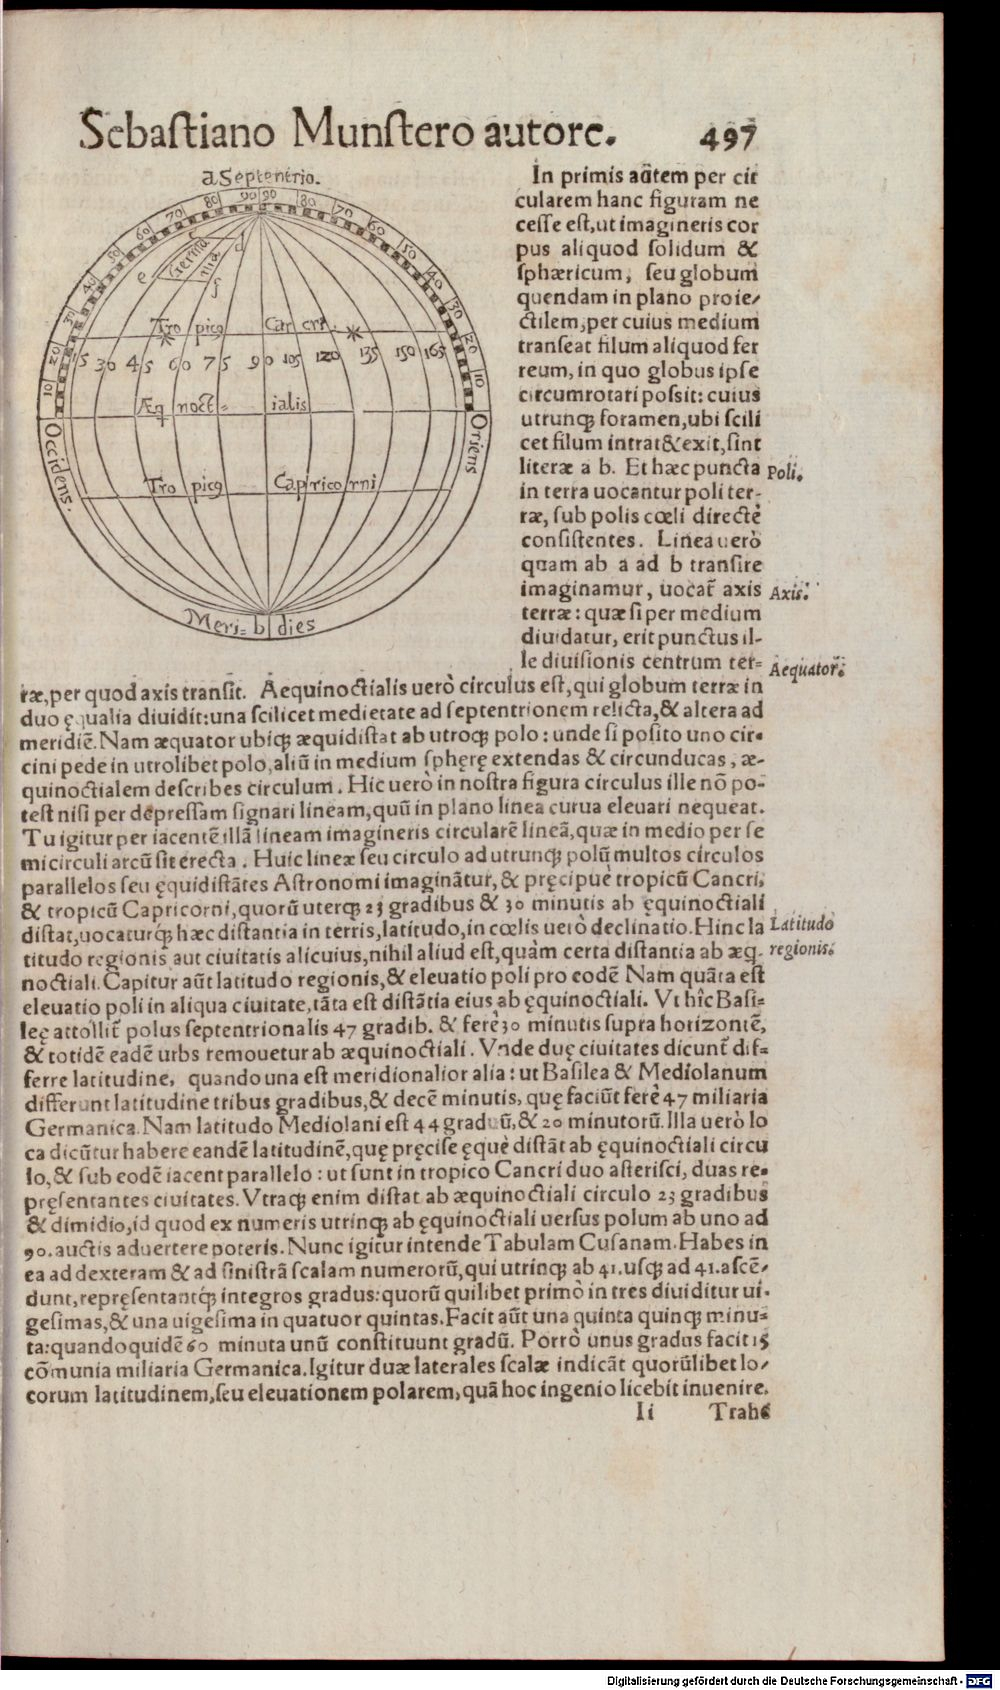 Sebastiano Munstero autore. 497
a Septentrio.
10 20 30 40 50 60 70 80 90 90 80 70 60 50 40 30 20 10
c d
Germa
nia
e f
Tropicꝰ Cancri.
15 30 45 60 75 90 105 120 135 150 165
Æqnoct= ialis
Occidens.
Oriens
Tropicꝰ Capricorni
Meri= b dies
In primis aũtem per cir
cularem hanc figuram ne
cesse est, ut imagineris cor
pus aliquod solidum &
sphæricum, seu globum
quendam in plano proie/
ctilem, per cuius medium
transeat filum aliquod fer
reum, in quo globus ipse
circumrotari possit: cuius
utrunqꝫ foramen, ubi scili
cet filum intrat & exit, sint
literæ a b. Et hæc puncta
Poli.
in terra uocantur poli ter-
ræ, sub polis cœli directè
consistentes. Linea uerò
quam ab a ad b transire
imaginamur, uocat̃ axis
Axis.
terræ: quæ si per medium
diuidatur, erit punctus il-
le diuisionis centrum ter=
Aequator.
ræ, per quod axis transit. Aequinoctialis uerò circulus est, qui globum terræ in
duo ęqualia diuidit: una scilicet medietate ad septentrionem relicta, & altera ad
meridiẽ. Nam æquator ubiqꝫ æquidistat ab utroqꝫ polo: unde si posito uno cir-
cini pede in utrolibet polo, aliũ in medium sphęrę extendas & circunducas, æ-
quinoctialem describes circulum. Hic uerò in nostra figura circulus ille nõ po-
test nisi per depressam signari lineam, quũ in plano linea curua eleuari nequeat.
Tu igitur per iacentẽ illã lineam imagineris circularẽ lineã, quæ in medio per se
micirculi arcũ sit erecta. Huic lineæ seu circulo ad utrunqꝫ polũ multos circulos
parallelos seu ęquidistãtes Astronomi imaginãtur, & pręcipuè tropicũ Cancri,
& tropicũ Capricorni, quorũ uterqꝫ 23 gradibus & 30 minutis ab ęquinoctiali
distat, uocaturqꝫ hæc distantia in terris, latitudo, in cœlis uerò declinatio. Hinc la
Latitudo
titudo regionis aut ciuitatis alicuius, nihil aliud est, quàm certa distantia ab æq-
regionis.
noctiali. Capitur aũt latitudo regionis, & eleuatio poli pro eodẽ Nam quãta est
eleuatio poli in aliqua ciuitate, tãta est distãtia eius ab ęquinoctiali. Vt hîc Basi-
leę attollit̃ polus septentrionalis 47 gradib. & ferè 30 minutis supra horizontẽ,
& totidẽ eadẽ urbs remouetur ab æquinoctiali. Vnde duę ciuitates dicunt̃ dif=
ferre latitudine, quando una est meridionalior alia: ut Basilea & Mediolanum
differunt latitudine tribus gradibus, & decẽ minutis, quę faciũt ferè 47 miliaria
Germanica. Nam latitudo Mediolani est 44 graduũ, & 20 minutorũ. Illa uerò lo
ca dicũtur habere eandẽ latitudinẽ, quę pręcise ęquè distãt ab ęquinoctiali circu
lo, & sub eodẽ iacent parallelo: ut sunt in tropico Cancri duo asterisci, duas re-
pręsentantes ciuitates. Vtraqꝫ enim distat ab æquinoctiali circulo 23 gradibus
& dimidio, id quod ex numeris utrinqꝫ ab ęquinoctiali uersus polum ab uno ad
90. auctis aduertere poteris. Nunc igitur intende Tabulam Cusanam. Habes in
ea ad dexteram & ad sinistrã scalam numerorũ, qui utrinqꝫ ab 41. usqꝫ ad 41. ascẽ/
dunt, repręsentantqꝫ integros gradus: quorũ quilibet primò in tres diuiditur ui-
gesimas, & una uigesima in quatuor quintas. Facit aũt una quinta quinqꝫ minu=
ta: quandoquidẽ 60 minuta unũ constituunt gradũ. Porrò unus gradus facit 15
cõmunia miliaria Germanica. Igitur duæ laterales scalæ indicãt quorũlibet lo/
corum latitudinem, seu eleuationem polarem, quã hoc ingenio licebit inuenire.
Ii Trahe
Digitalisierung gefördert durch die Deutsche Forschungsgemeinschaft - DFG